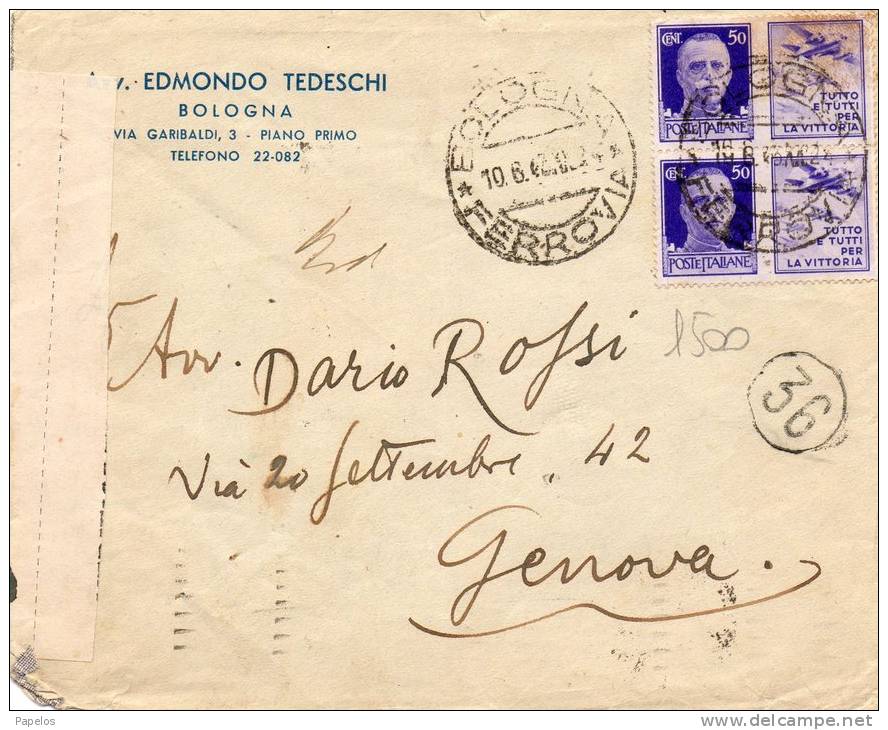 v. EDMONDO TEDESCHI
BOLOGNA
VIA GARIBALDI, 3 - PIANO PRIMO
TELEFONO 22-082
BOLOGNA
FERROVIA
CENT. 50
POSTE ITALIANE
TUTTO
E TUTTI
PER
LA VITTORIA
CENT. 50
POSTE ITALIANE
TUTTO
E TUTTI
PER
LA VITTORIA
1500
Avv. Dario Rossi
36
Via 20 Settembre, 42
Genova.
Papelos
www.delcampe.net